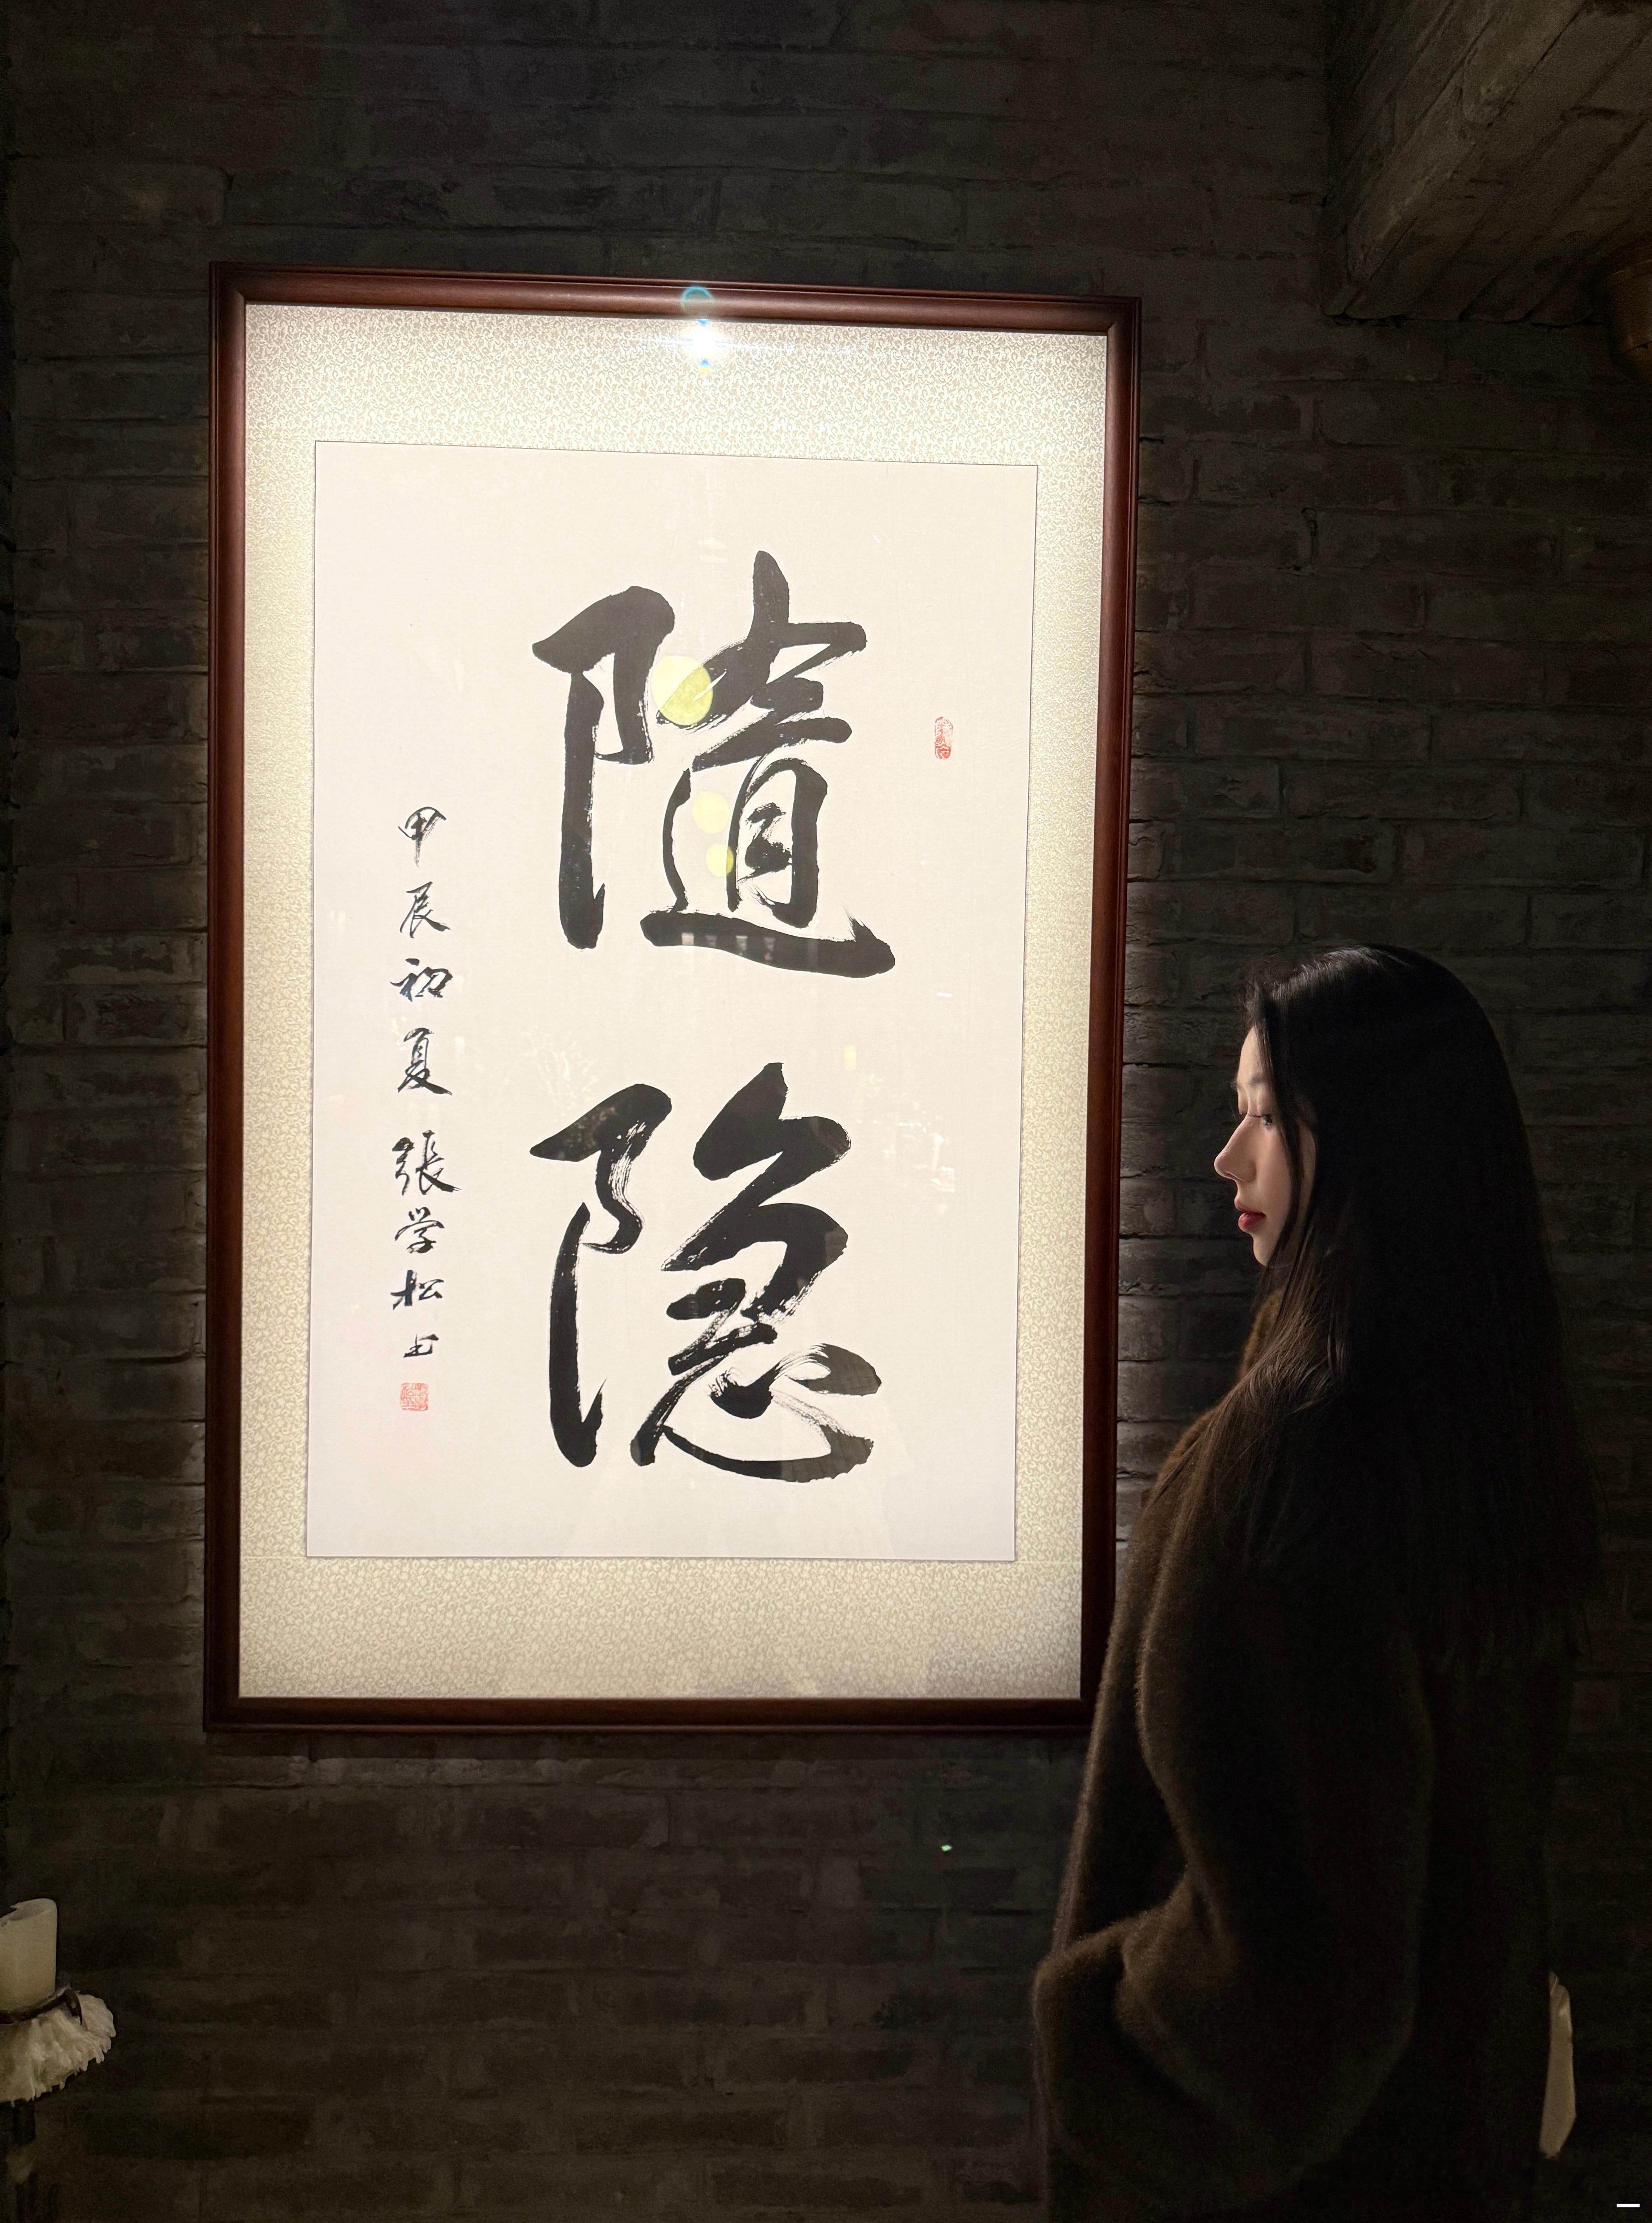 隨隐
甲辰初夏張学松书